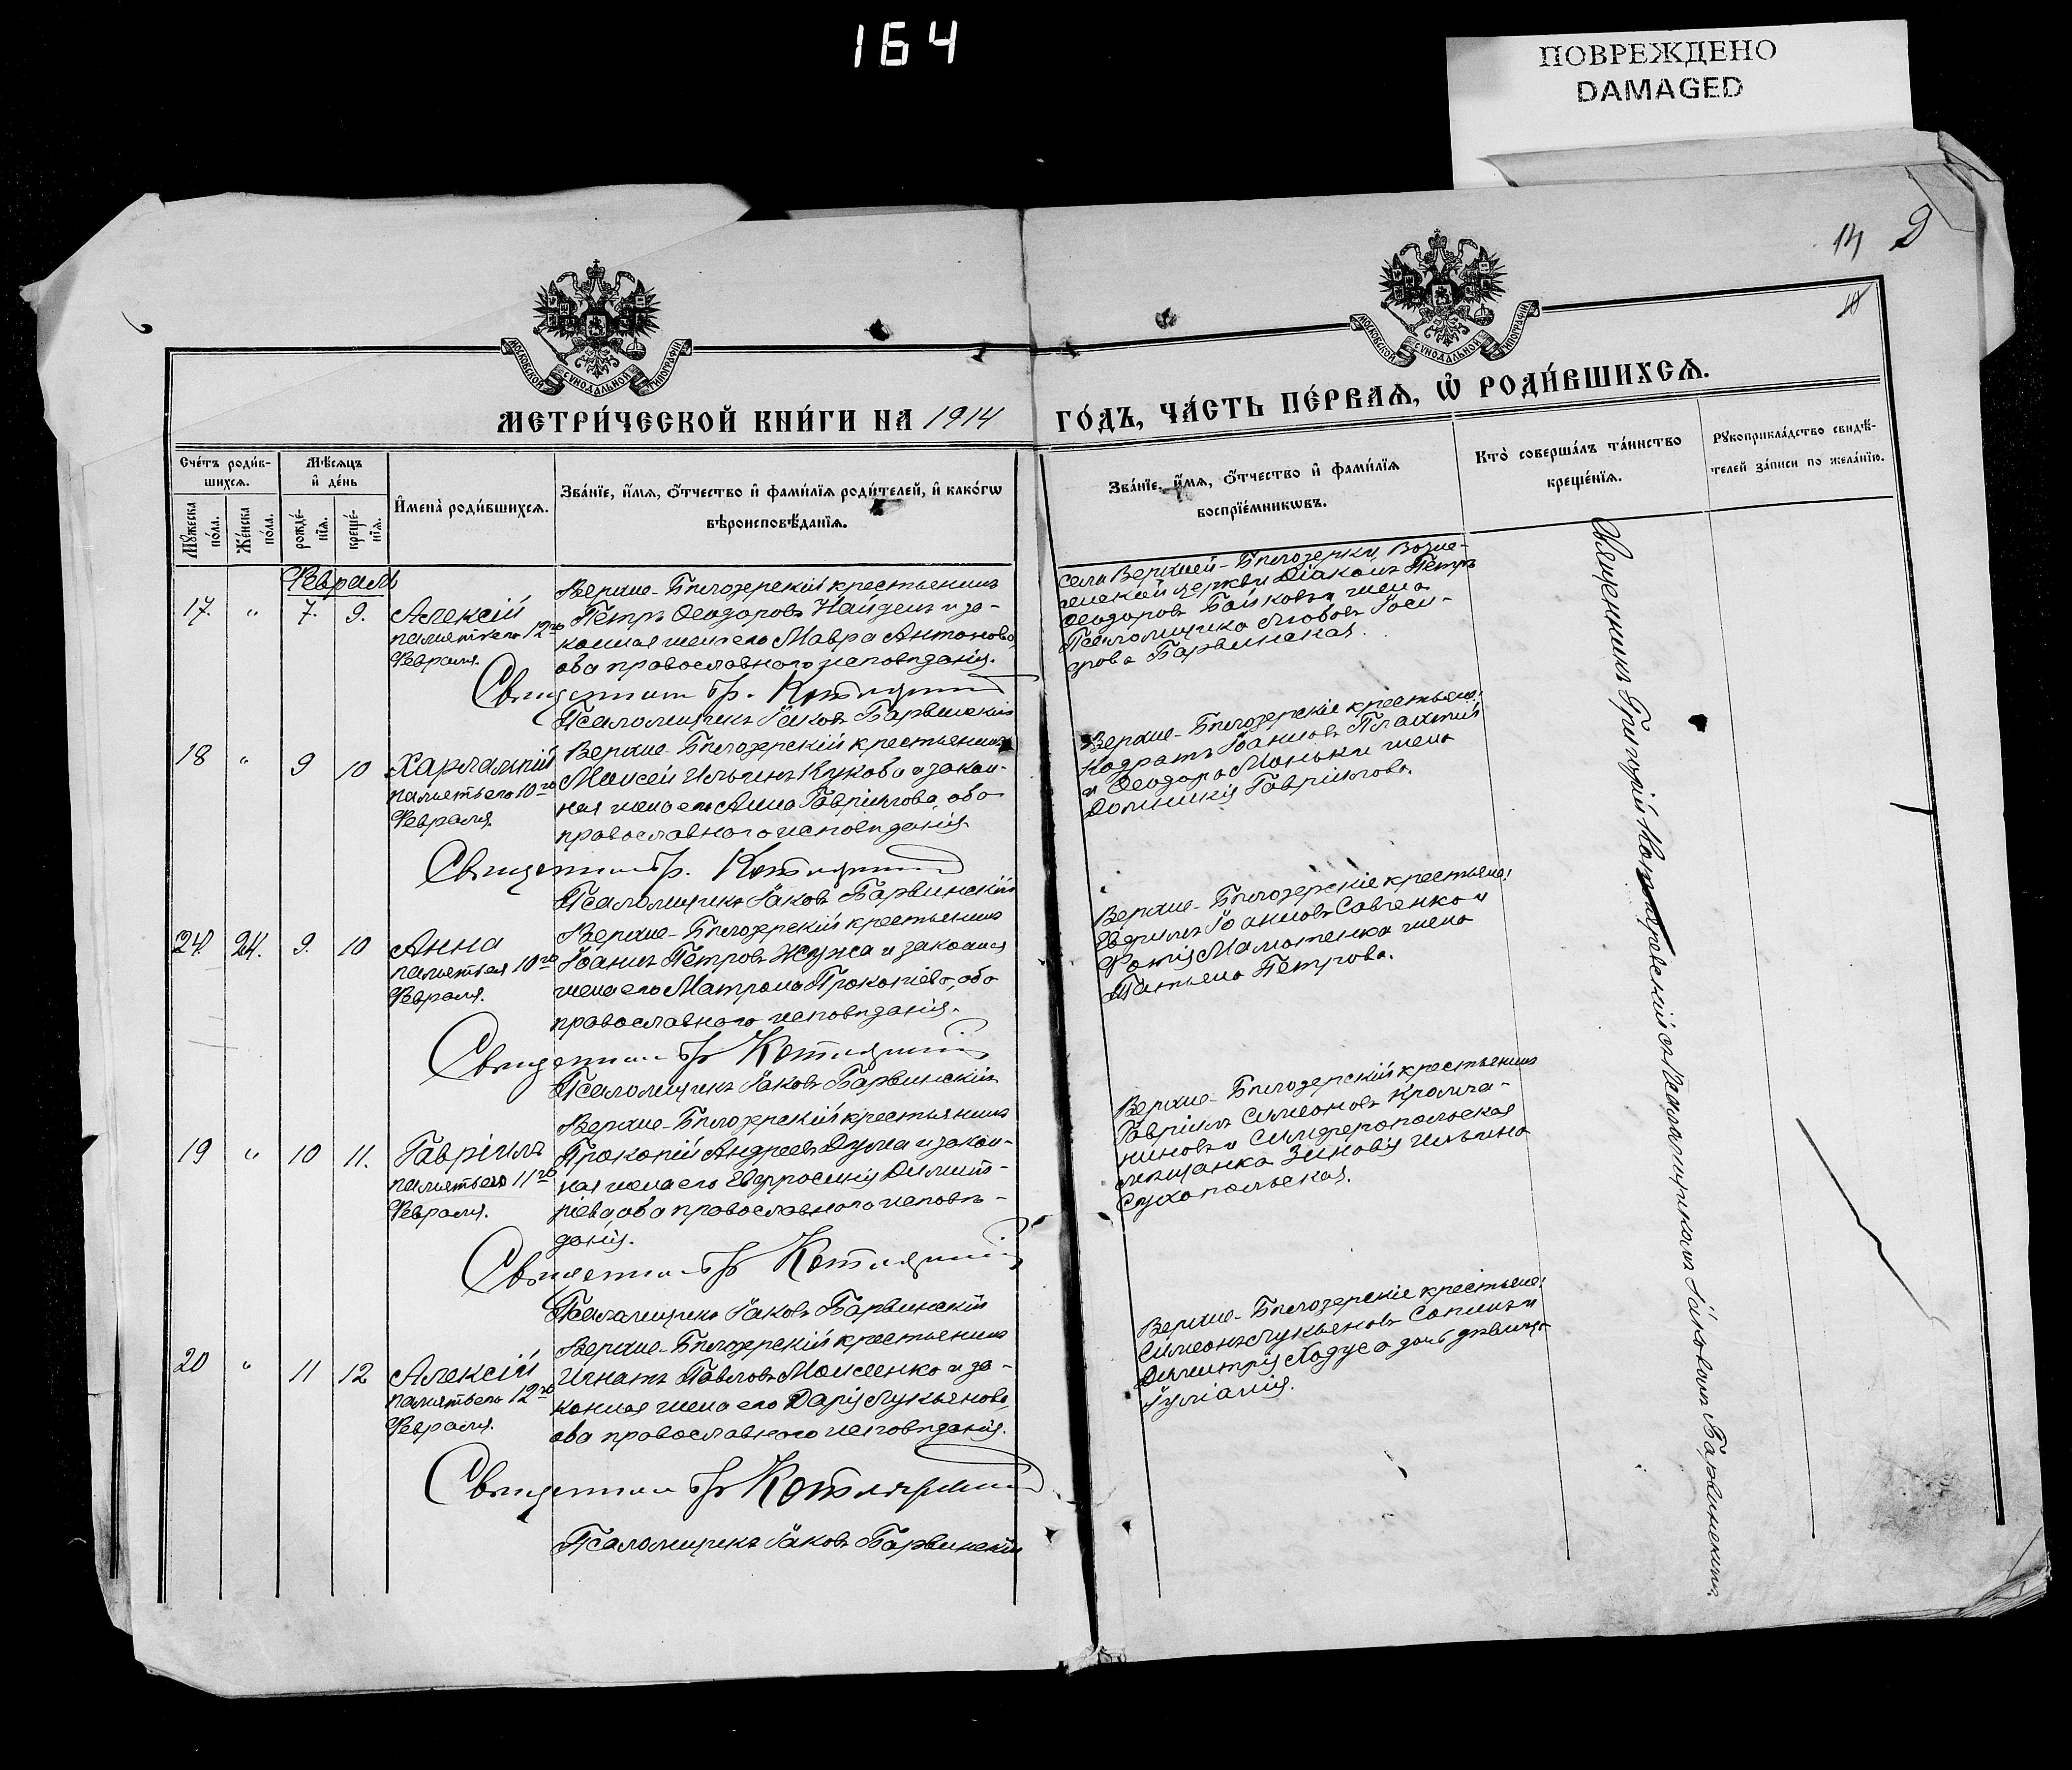 164
ПОВРЕЖДЕНО
DAMAGED
14
МОСКОВСКОЙ СѴНОДАЛЬНОЙ ТИПОГРАФІИ
МОСКОВСКОЙ СѴНОДАЛЬНОЙ ТИПОГРАФІИ
МЕТРИ́ЧЕСКОЙ КНИ́ГИ НА 1914
ГО́ДЪ, ЧА́СТЬ ПЕ́РВАѦ, Ѽ РОДИ́ВШИХСѦ.
Сче́тъ роди́в-
шихсѧ.
Мꙋ́жеска
по́ла.
Же́нска
по́ла.
Мѣ́сѧцъ
и҆ де́нь
рожде́-
нїѧ.
креще́-
нїѧ.
И҆мена̀ роди́вшихсѧ.
Зва́нїе, и҆́мѧ, ѻ҆́тчество и҆ фами́лїѧ роди́телей, и҆ како́гѡ
вѣроисповѣ́данїѧ.
Зва́нїе, и҆́мѧ, ѻ҆́тчество и҆ фами́лїѧ
воспрїе́мникѡвъ.
Кто̀ соверша́лъ та́инство
креще́нїѧ.
Рꙋкоприкла́дство свидѣ́-
телей за́писи по жела́нїю.
Февраль
17. " 7. 9.
Алексій
память его 12го
Февраля.
Верхне-Бѣлозерскій крестьянинъ
Петръ Ѳеодоровъ Найденъ и за-
конная жена его Мавра Антонова,
оба православнаго исповѣданія.
Священникъ Гр. Котляревскій
Псаломщикъ Іаковъ Барвинскій
села Верхней-Бѣлозерки, Возне-
сенской церкви Діаконъ Петръ
Ѳеодоровъ Байковъ и жена
Псаломщика Любовь Іоси-
фова Барвинская.
18 " 9 10
Харлампій
память его 10го
Февраля.
Верхне-Бѣлозерскій крестьянинъ
Моисей Ильинъ Куковъ и закон-
ная жена его Анна Гавріилова, оба
православнаго исповѣданія.
Священникъ Гр. Котляревскій
Псаломщикъ Іаковъ Барвинскій
Верхне-Бѣлозерскіе крестьяне:
Кодратъ Іоанновъ Плахтій
и Ѳеодора Моньки жена
Домникія Гавріилова.
24. 24. 9. 10
Анна
память ея 10го
Февраля.
Верхне-Бѣлозерскій крестьянинъ
Іоаннъ Петровъ Жужа и законная
жена его Матрона Прокопіева, оба
православнаго исповѣданія.
Священникъ Гр. Котляревскій
Псаломщикъ Іаковъ Барвинскій
Верхне-Бѣлозерскіе крестьяне:
Ефримъ Іоанновъ Савченко и
Фотія Мамотенка жена
Татьяна Петрова.
19 " 10 11.
Гавріилъ
память его 11го
Февраля.
Верхне-Бѣлозерскій крестьянинъ
Прокопій Андреевъ Дума и закон-
ная жена его Евфросинія Димит-
ріева, оба православнаго исповѣ-
данія.
Священникъ Гр. Котляревскій
Псаломщикъ Іаковъ Барвинскій
Верхне-Бѣлозерскій крестьянинъ
Гавріилъ Симеоновъ Крамча-
ниновъ и Симферопольская
мѣщанка Зиновія Ильина
Сухопольская.
20 " 11 12
Алексій
память его 12го
Февраля.
Верхне-Бѣлозерскій крестьянинъ
Игнатъ Павловъ Моисеенко и за-
конная жена его Дарія Лукьянова,
оба православнаго исповѣданія.
Священникъ Гр. Котляревскій
Псаломщикъ Іаковъ Барвинскій
Верхне-Бѣлозерскіе крестьяне:
Симеонъ Лукьяновъ Сопинъ и
Димитрія Ходуса дочь дѣвица
Іуліанія.
Священникъ Григорій Котляревскій съ Псаломщикомъ Іаковомъ Барвинскимъ.